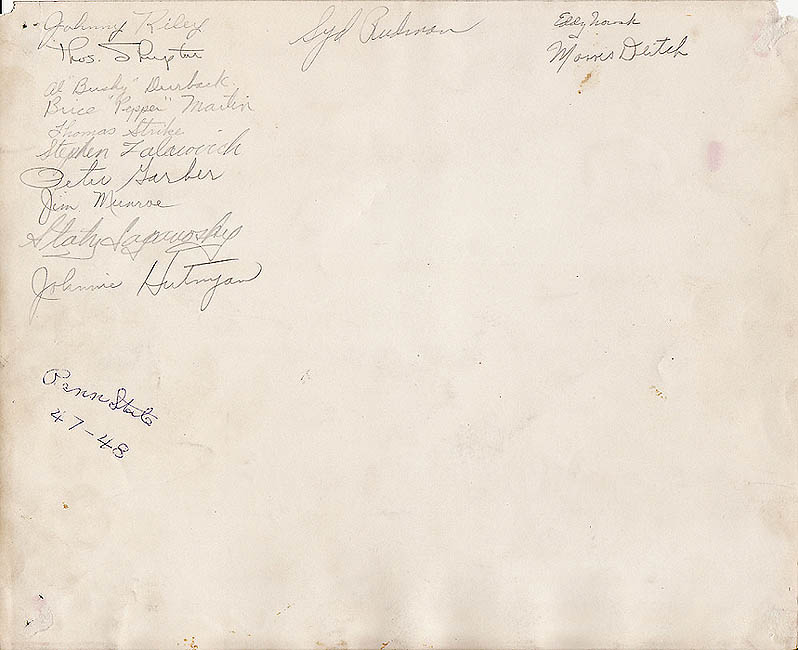 Johnny Riley
Thos. Shupter
Al "Bushy" Durback
Brice "Pepper" Martin
Thomas Strike
Stephen Zalewich
Peter Garber
Jim Munroe
Johnnie Hutnyan
Syd Rudman
Eddy Novak
Morris Deitch
Penn State
47-48